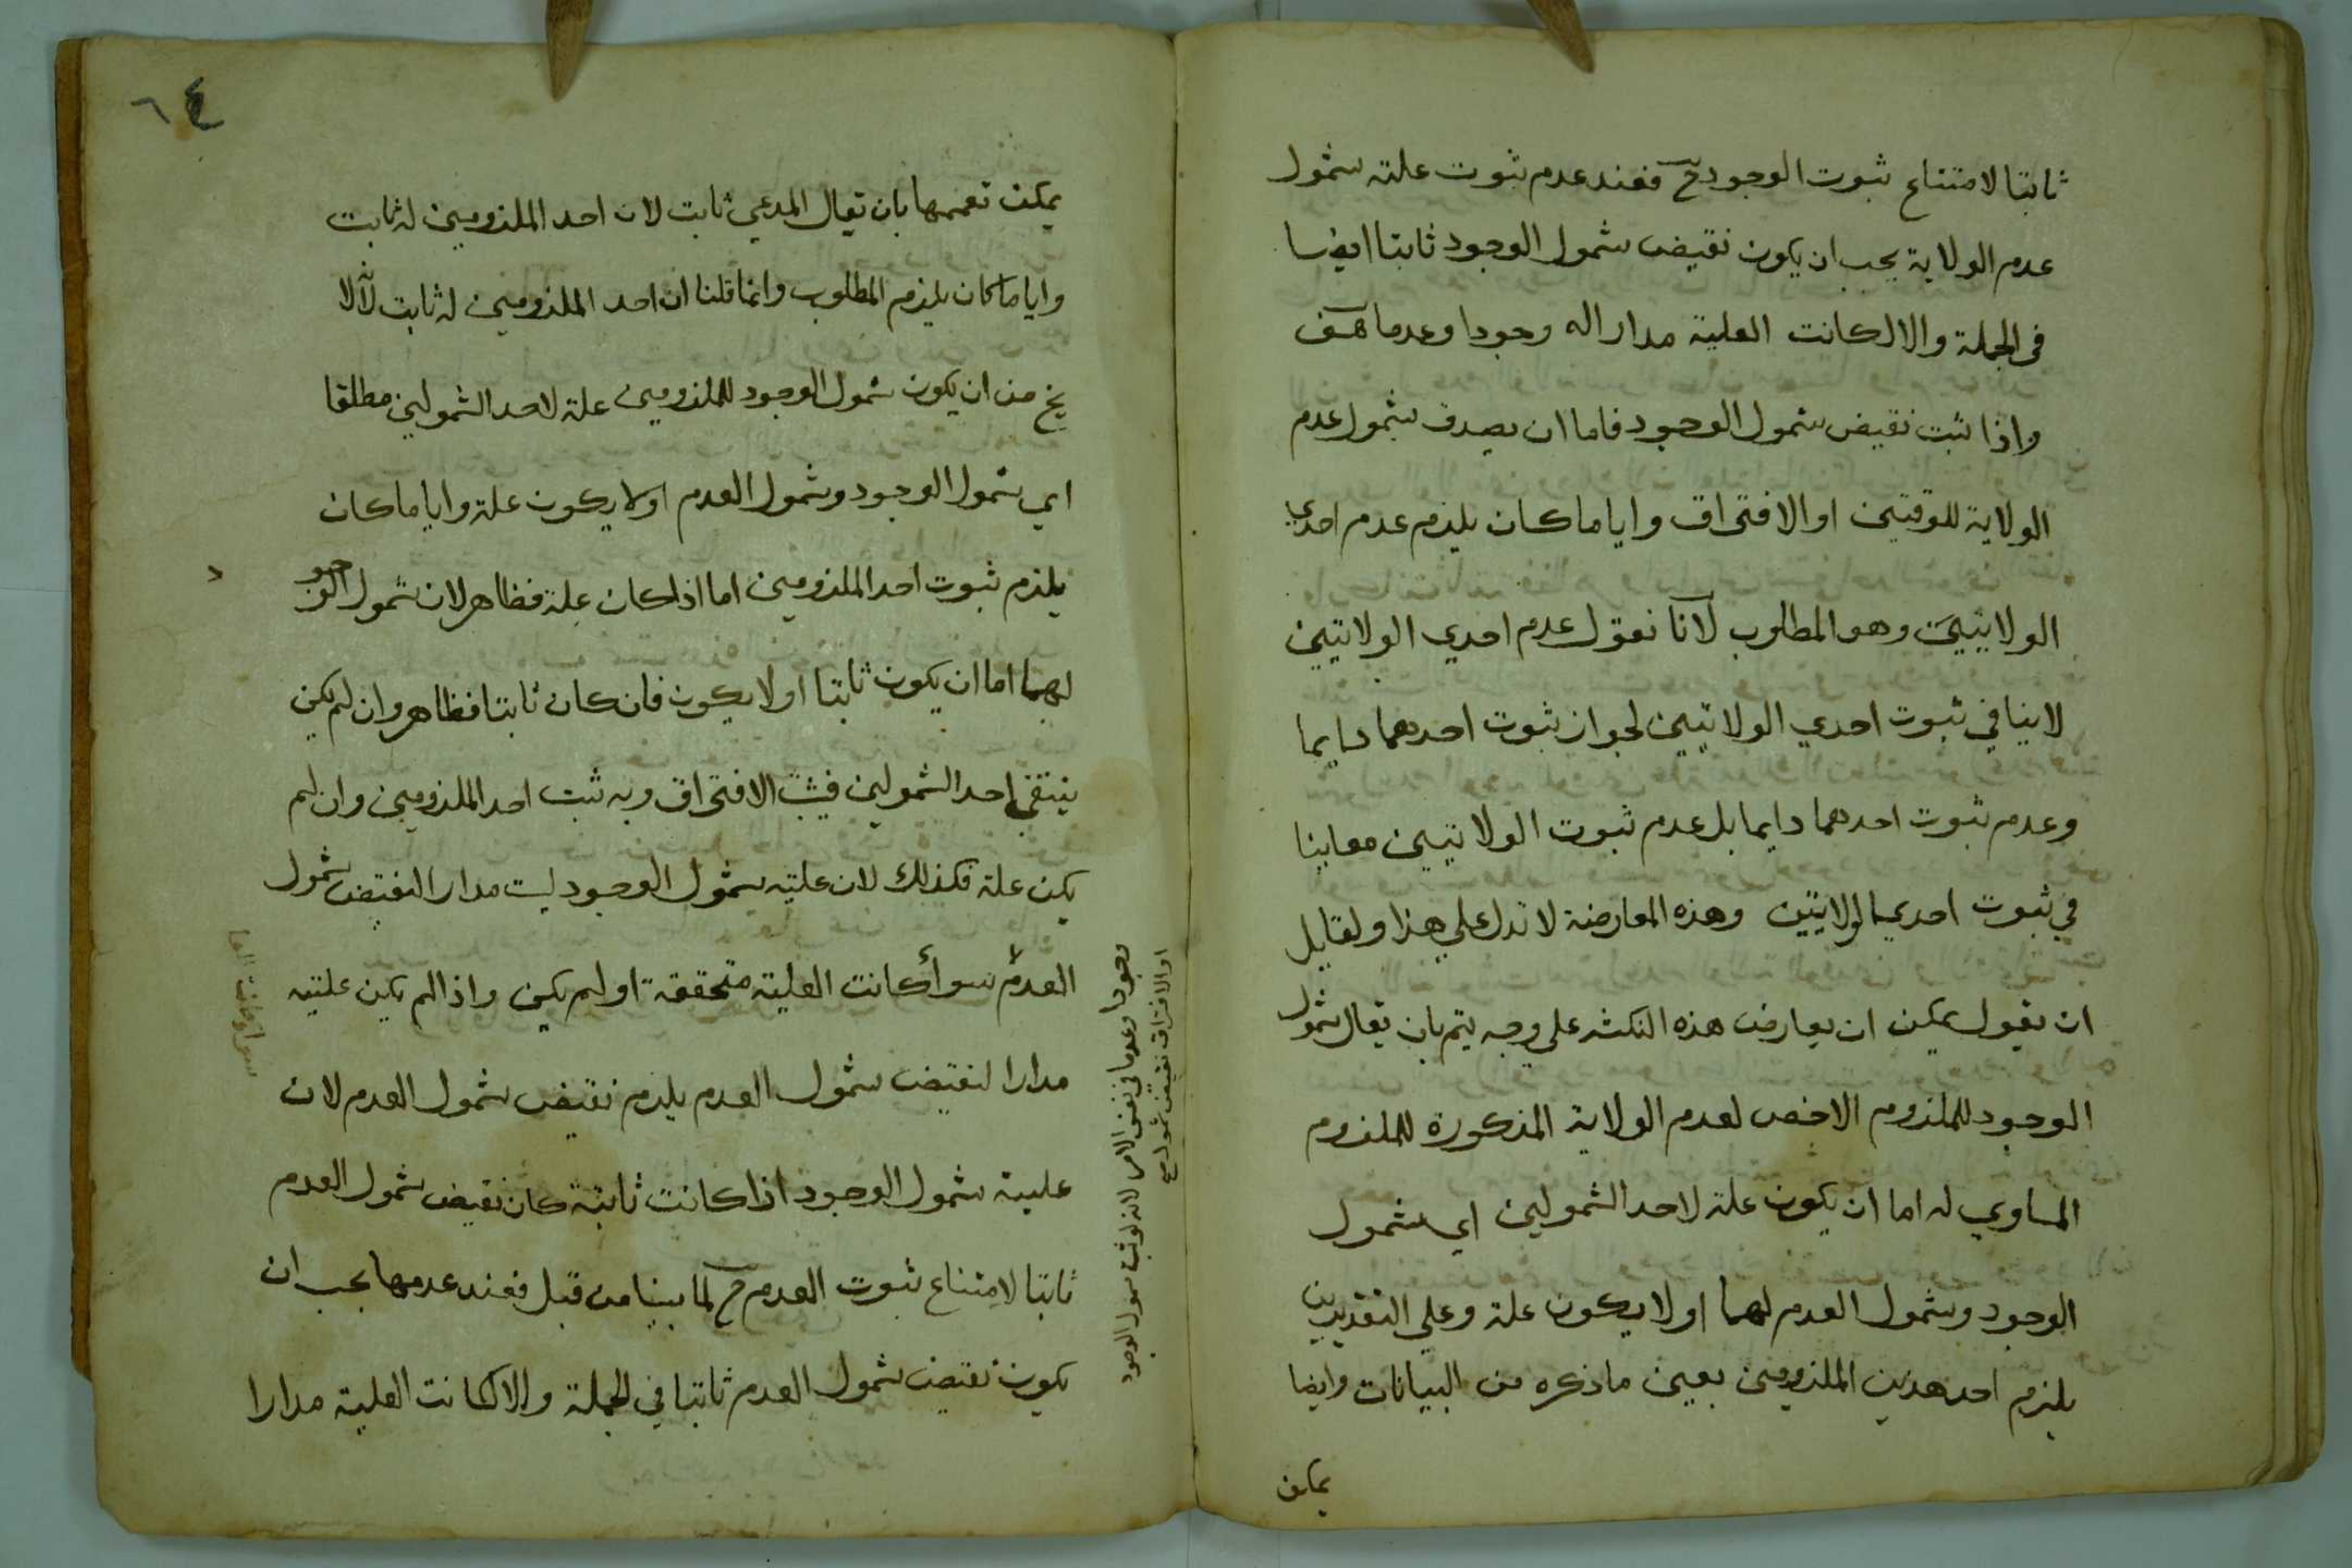 ثابتا لامتناع ثبوت الوجود ح فعند عدم ثبوت علته شمول
عدم الولاية يجب ان يكون نقيض شمول الوجود ثابتا ايضا
فى الجملة والا لكانت العلية مدارا له وجودا وعدما هف
واذا ثبت نقيض شمول الوجود فاما ان يصدق شمول عدم
الولاية للوقتين او الافتراق وايا ما كان يلزم عدم احدي
الولايتين وهو المطلوب لانا نقول عدم احدي الولايتين
لاينافي ثبوت احدي الولايتين لجواز ثبوت احدهما دايما
وعدم ثبوت احدهما دايما بل عدم ثبوت الولايتين معا ينا
في ثبوت احدي الولايتين وهذه المعارضة لا تدل علي هذا ولقايل
ان يقول يمكن ان يعارض هذه النكتة على وجه يتم بان يقال شمول
الوجود للملزوم الاخص لعدم الولاية المذكورة للملزوم
المساوي له اما ان يكون علة لاحد الشمولين اي شمول
الوجود وشمول العدم لهما او لا يكون علة وعلي التقديرين
يلزم احد هذين الملزومين بعين ما ذكره من البيانات وايضا
يمكن
٦٤
يمكن تعميمها بان يقال المدعي ثابت لان احد الملزومين له ثابت
وايا ما كان يلزم المطلوب وانما قلنا ان احد الملزومين له ثابت لانه لا
يخ من ان يكون شمول الوجود للملزومين علة لاحد الشمولين مطلقا
اي شمول الوجود وشمول العدم او لا يكون علة وايا ما كان
يلزم ثبوت احد الملزومين اما اذا كان علة فظاهر لان شمول الوجو
د
لهما اما ان يكون ثابتا او لا يكون فان كان ثابتا فظاهر وان لم يكن
ينتفي احد الشمولين فيثبت الافتراق وبه ثبت احد الملزومين وان لم
يكن علة فكذلك لان علية شمول الوجود ليست مدارا لنقيض شمول
العدم سواء كانت العلية متحققة او لم يكن واذا لم يكن علتيه
مدارا لنقيض شمول العدم يلزم نقيض شمول العدم لان
علية شمول الوجود اذا كانت ثابتة كان نقيض شمول العدم
ثابتا لامتناع ثبوت العدم ح لما بينا من قبل فعند عدمها يجب ان
يكون نقيض شمول العدم ثابتا في الجملة والا لكانت العلية مدارا
وجودا وعدما في نفس الامر لانه لو ثبت شمول الوجود
او الافتراق نقيض
سوا كانت العا